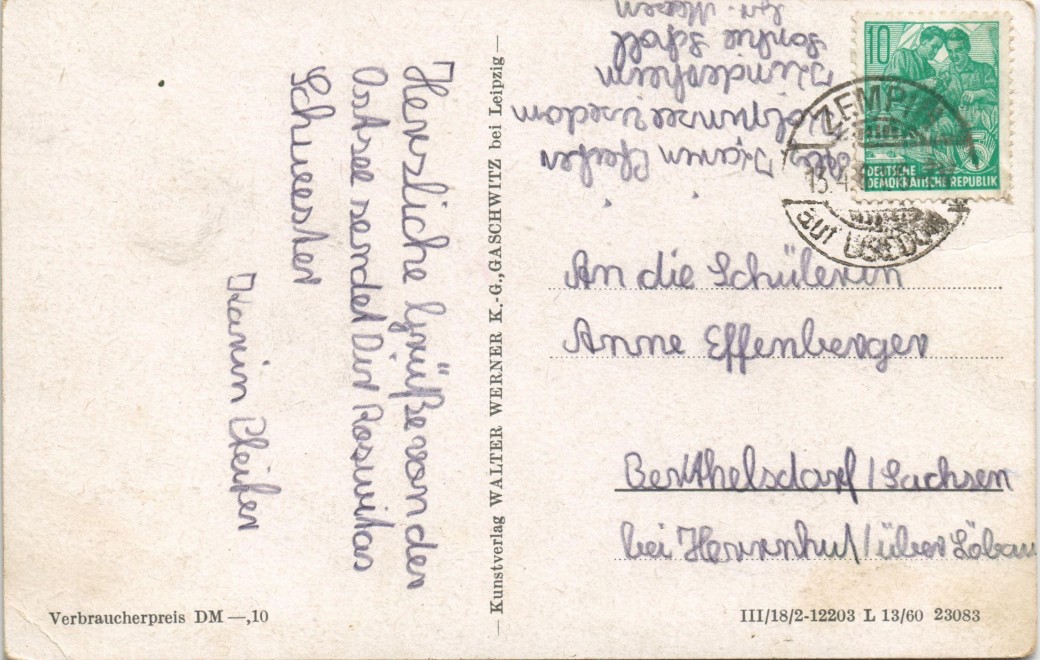 Herzliche Grüße von der
Ostsee sendet Dir Roswitas
Schwester
Karin Pfeifer
Kunstverlag WALTER WERNER K.-G., GASCHWITZ bei Leipzig
Abs. Karin Pfeifer
Kölpinsee Usedom
Kinderheim
Sophie Scholl
10
DEUTSCHE
DEMOKRATISCHE REPUBLIK
ZEMPIN
auf USEDOM
An die Schülerin
Anne Effenberger
Berthelsdorf/Sachsen
bei Herrnhut/über Löbau
Verbraucherpreis DM —,10
III/18/2-12203 L 13/60 23083